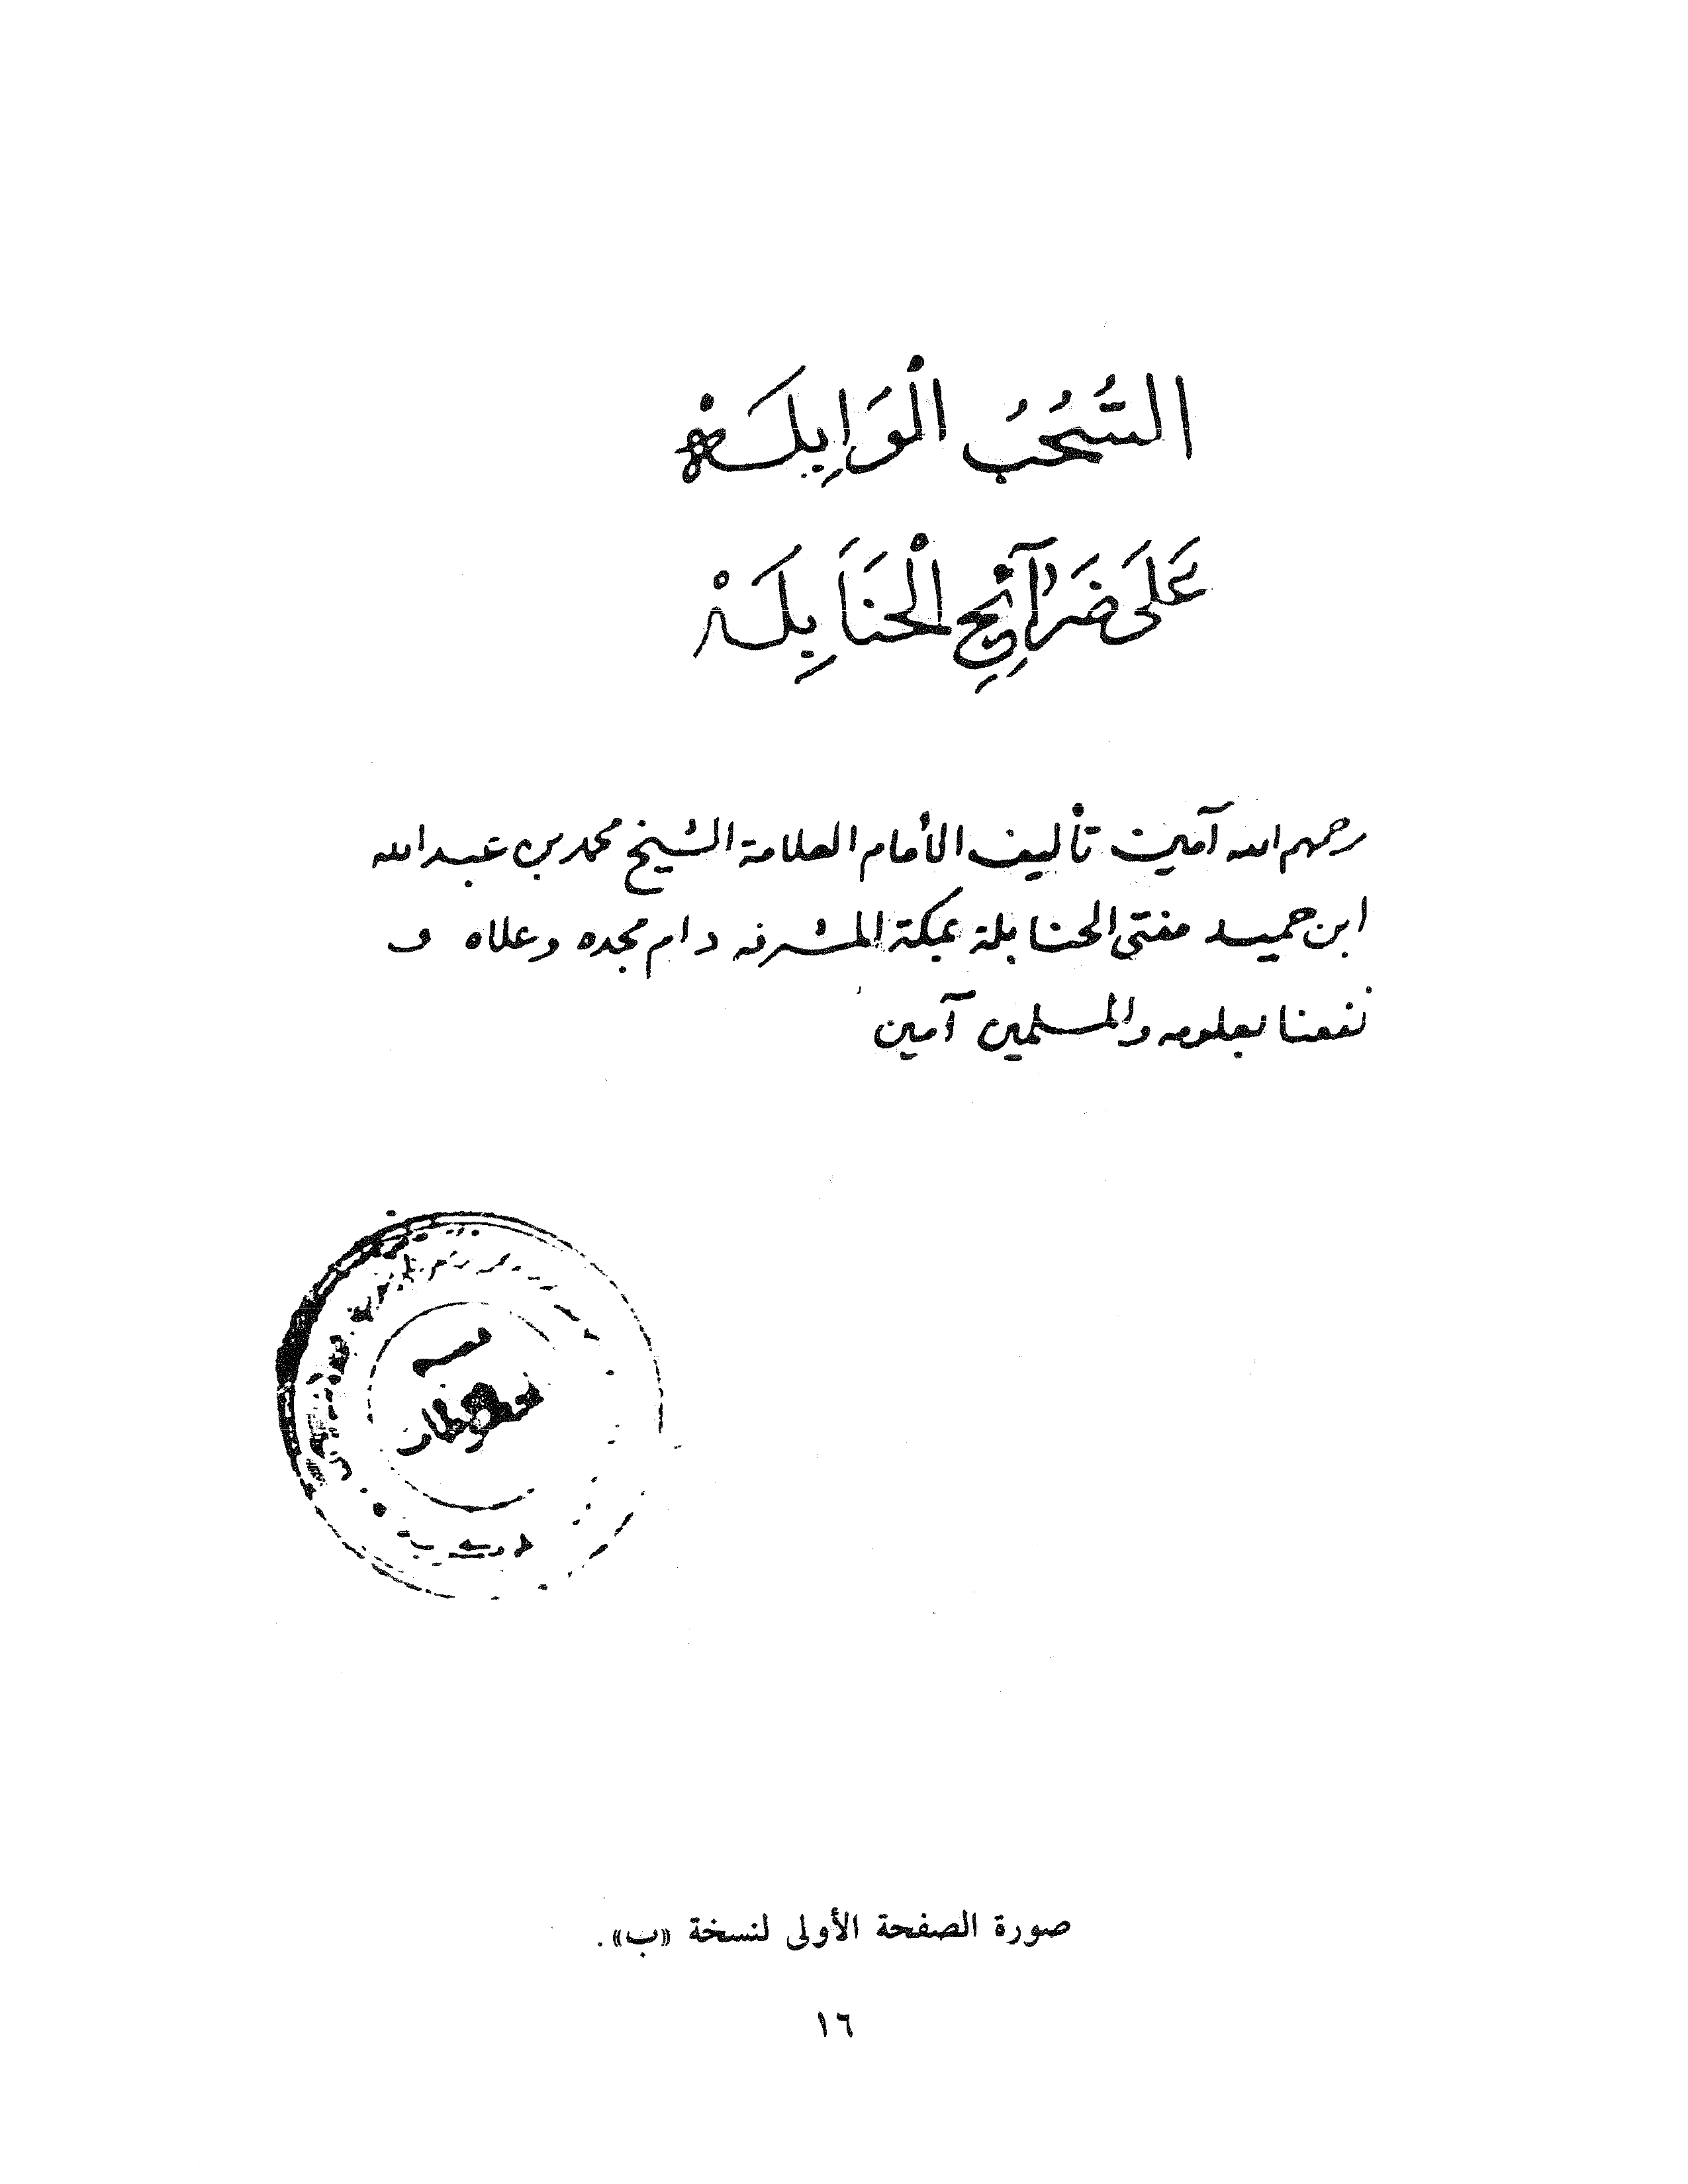 السُّحُبُ الْوَابِلَةْ
عَلَى ضَرَآئِحِ الْحَنَابِلَةْ
رحمهم الله آمين تأليف الأمام العلامة الشيخ محمد بن عبد الله
ابن حميد مفتى الحنابلة بمكة المشرفه دام مجده وعلاه و
نفعنا بعلومه والمسلمين آمين
قسم
المخطوطات
صورة الصفحة الأولى لنسخة «ب».
١٦